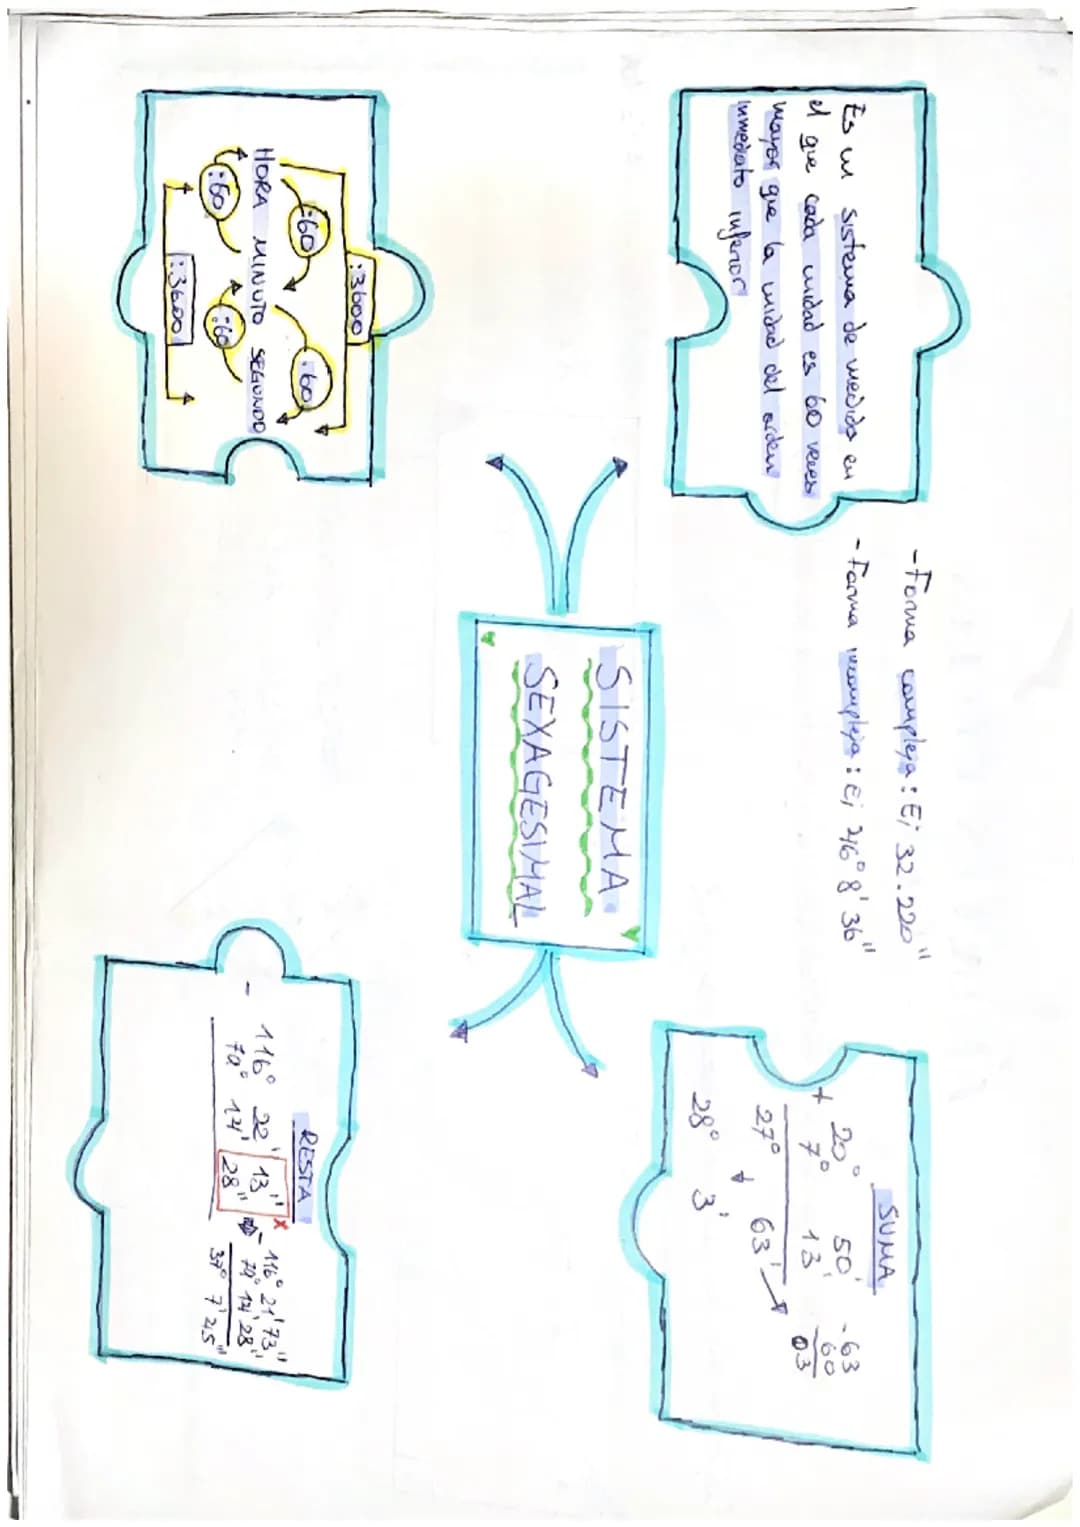 Es un sistema de medida en
el que cada unidad es 60 veces
mayor que la unidad del orden
inmediato inferior
- Forma compleja: Ej 32.220"
- Forma incompleja: Ej 246° 8' 36"
SUMA
20° 50' - 63
+ 7° 13' 60
27° 63' 03
28° 3'
SISTEMA
SEXAGESIMAL
:3600
:60 .60
HORA MINUTO SEGUNDO
:60 :60
:3600
RESTA
116° 22' 13" x - 116° 21' 73"
- 79° 14' 28" 79° 14' 28"
37° 7' 45"